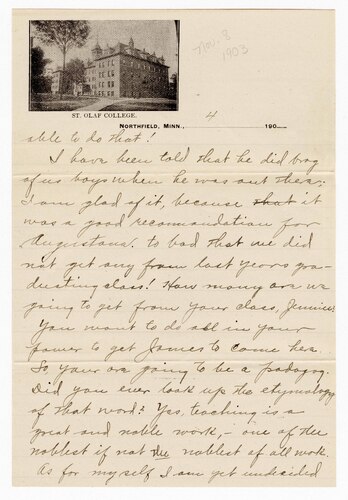 Nov. 8
1903
ST. OLAF COLLEGE.
NORTHFIELD, MINN., 4 190
able to do that!
I have been told that he did brag
of us boys when he was out there;
I am glad of it, because that it
was a good recomandation for
Augustana. to bad that we did
not get any from last years gra-
duating class! How many are we
going to get from your class, Jennie?
You want to do all in your
power to get James to come her.
So your are going to be a padagog.
Did you ever look up the etymology
of that word? Yes, teaching is a
great and noble work, - one of the
noblest if not the noblest of all work.
As for myself I am yet undecided